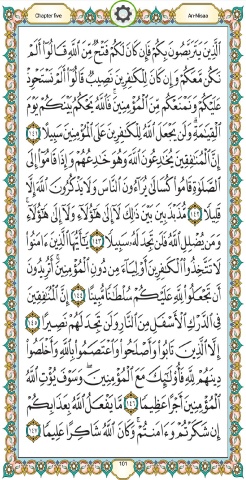 Chapter five
An-Nisaa
ٱلَّذِينَ يَتَرَبَّصُونَ بِكُمْ فَإِن كَانَ لَكُمْ فَتْحٌ مِّنَ ٱللَّهِ قَالُوٓا۟ أَلَمْ
نَكُن مَّعَكُمْ وَإِن كَانَ لِلْكَٰفِرِينَ نَصِيبٌ قَالُوٓا۟ أَلَمْ نَسْتَحْوِذْ
عَلَيْكُمْ وَنَمْنَعْكُم مِّنَ ٱلْمُؤْمِنِينَ ۚ فَٱللَّهُ يَحْكُمُ بَيْنَكُمْ يَوْمَ
ٱلْقِيَٰمَةِ ۗ وَلَن يَجْعَلَ ٱللَّهُ لِلْكَٰفِرِينَ عَلَى ٱلْمُؤْمِنِينَ سَبِيلًا ١٤١
إِنَّ ٱلْمُنَٰفِقِينَ يُخَٰدِعُونَ ٱللَّهَ وَهُوَ خَٰدِعُهُمْ وَإِذَا قَامُوٓا۟ إِلَى
ٱلصَّلَوٰةِ قَامُوا۟ كُسَالَىٰ يُرَآءُونَ ٱلنَّاسَ وَلَا يَذْكُرُونَ ٱللَّهَ إِلَّا
قَلِيلًا ١٤٢ مُّذَبْذَبِينَ بَيْنَ ذَٰلِكَ لَآ إِلَىٰ هَٰٓؤُلَآءِ وَلَآ إِلَىٰ هَٰٓؤُلَآءِ ۚ
وَمَن يُضْلِلِ ٱللَّهُ فَلَن تَجِدَ لَهُۥ سَبِيلًا ١٤٣ يَٰٓأَيُّهَا ٱلَّذِينَ ءَامَنُوا۟
لَا تَتَّخِذُوا۟ ٱلْكَٰفِرِينَ أَوْلِيَآءَ مِن دُونِ ٱلْمُؤْمِنِينَ ۚ أَتُرِيدُونَ
أَن تَجْعَلُوا۟ لِلَّهِ عَلَيْكُمْ سُلْطَٰنًا مُّبِينًا ١٤٤ إِنَّ ٱلْمُنَٰفِقِينَ
فِى ٱلدَّرْكِ ٱلْأَسْفَلِ مِنَ ٱلنَّارِ وَلَن تَجِدَ لَهُمْ نَصِيرًا ١٤٥
إِلَّا ٱلَّذِينَ تَابُوا۟ وَأَصْلَحُوا۟ وَٱعْتَصَمُوا۟ بِٱللَّهِ وَأَخْلَصُوا۟
دِينَهُمْ لِلَّهِ فَأُو۟لَٰٓئِكَ مَعَ ٱلْمُؤْمِنِينَ ۖ وَسَوْفَ يُؤْتِ ٱللَّهُ
ٱلْمُؤْمِنِينَ أَجْرًا عَظِيمًا ١٤٦ مَّا يَفْعَلُ ٱللَّهُ بِعَذَابِكُمْ
إِن شَكَرْتُمْ وَءَامَنتُمْ ۚ وَكَانَ ٱللَّهُ شَاكِرًا عَلِيمًا ١٤٧
101